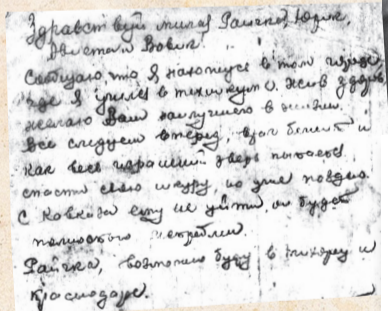 Здравствуй милая Раичка, Юрик,
Светлан Вовик.
Сообщаю, что я нахожусь в том городе
где я учился в техникуме. Жив здоров
желаю Вам наилучшего в жизни.
Все следуем вперед, враг бежит и
как весь израненый зверь пытается
спасти свою шкуру, но уже поздно.
С Кавказа ему не уйти, он будет
полностью истреблен.
Раичка, возможно буду в Тихорец и
Краснодаре.